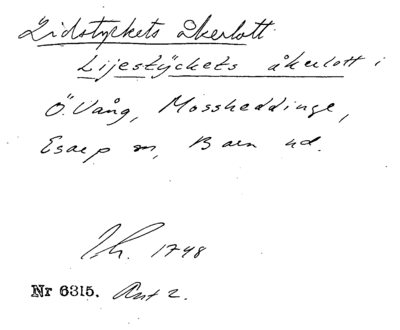 Lidstyckets åkerlott
Lijestÿckets åkerlott i
Ö. Vång, Mossheddinge,
Esarp sn, Bara hd.
Ih. 1748
Nr 6315. Akt 2.